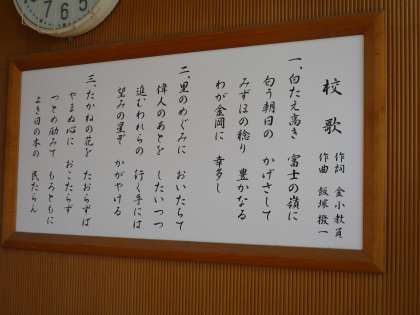 校歌
作詞 金小教員
作曲 飯塚 撥一
一、白たえ高き 富士の嶺に
匂う朝日の かげさして
みずほの稔り 豊かなる
わが金岡に 幸多し
二、里のめぐみに おいたちて
偉人のあとを したいつつ
進むわれらの 行く手には
望みの星ぞ かがやける
三、たかねの花を たおらずば
やまぬ心に おこたらず
つとめ励みて もろともに
よき日の本の 民たらん
7 6 5